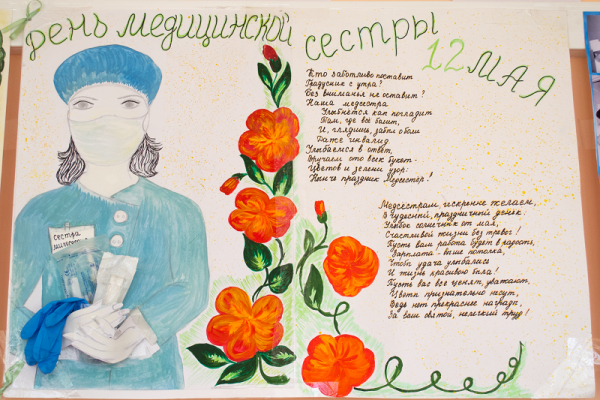 День медицинской сестры
12 мая
Кто заботливо поставит
Градусник с утра?
Без вниманья не оставит?
Наша медсестра
Улыбнётся как погладит
Там, где всё болит,
И, глядишь, забыл о боли
Даже инвалид.
Улыбаемся в ответ,
Вручаем ото всех букет -
Цветов и зелени узор:
Нынче праздник Медсестёр!
Медсестрам, искренне желаем,
В чудесный, праздничный денек.
Улыбок солнечных от мая,
Счастливой жизни без тревог!
Пусть вам работа будет в радость,
Зарплата - выше потолка,
Чтоб удача улыбалась
И жизнь красивою была!
Пусть вас все ценят, уважают,
Цветы признательно несут,
Ведь нет прекраснее награды,
За ваш святой, нелегкий труд!
сестра